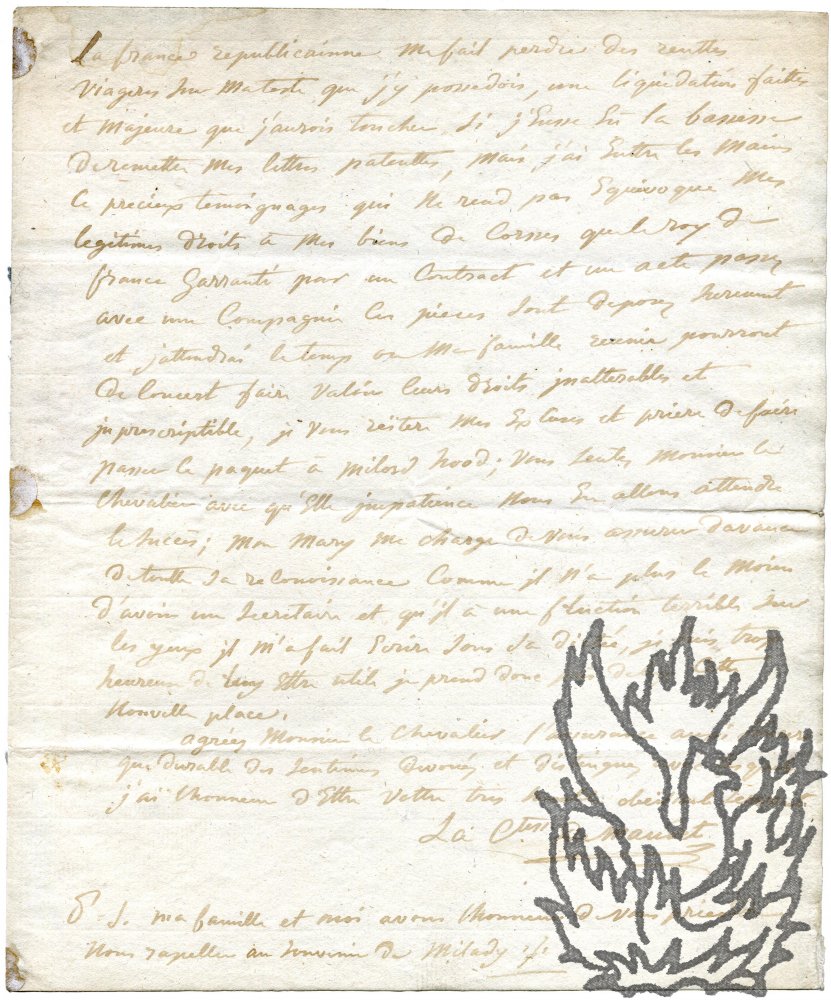 La france republicainne me fait perdre des renttes
viageres sur ma teste que j'y possedois, une liquidation faittes
et majeure que j'aurois toucher si j'eusse eu la bassesse
de remettre mes lettres patenttes, mais j'ai entre les mains
ce precieux temoignages qui ne rend pas equivoque mes
legitimes droits à mes biens de Corses que le roy de
france garranti par un Contract et un acte passez
avec une Compagnie Ces pieces sont deposez
et j'attendrai le temps ou ma famille reunie pourront
de Concert faire valoir leurs droits jnalterables et
jnprescriptible, je vous reïtere mes Excuses et priere de faire
passer le paquet à milord hood; vous sentes monsieur le
Chevalier avec qu'Elle jnpatience nous En allons attendre
le succès; mon mary me charge de vous assurer d'avance
de toutte sa reconoissance Comme jl n'a plus le moien
d'avoir un secretaire et qu'jl à une fluction terrible sur
les yeux jl m'a fait Ecrire sous sa dictée, je suis trop
heureux de luy Ettre utile je prend donc
nouvelle place.
agrées Monsieur le Chevalier l'assurance aussi
que durable des sentimens devoués et distingues
j'ai l'honneur d'Ettre vottre tres
La Ctesse de
P. S. ma famille et moi avons l'honneur de vous prier de
nous rapeller au souvenir de Milady